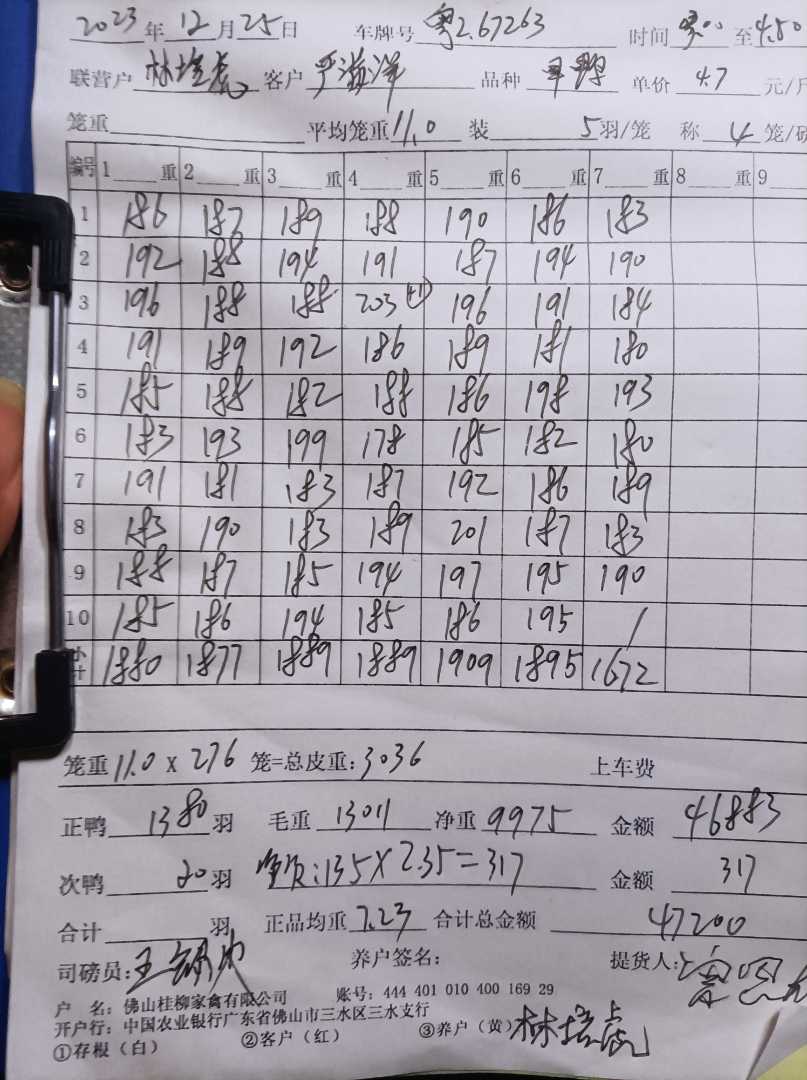 2023年12月25日 车牌号 粤2.67263 时间 至4.50
联营户 林培虎 客户 严滋洋 品种 单价 4.7 元/斤
笼重 平均笼重11.0 装 5羽/笼 称 4 笼/磅
编号 1 重 2 重 3 重 4 重 5 重 6 重 7 重 8 重 9
1 186 187 189 188 190 186 183
2 192 188 194 191 187 194 190
3 196 188 188 203(+1) 196 191 184
4 191 189 192 186 189 181 180
5 185 188 182 188 186 198 193
6 183 193 199 178 185 182 180
7 191 181 183 187 192 186 189
8 183 190 183 189 201 187 183
9 188 187 185 194 197 195 190
10 185 186 194 185 186 195 /
小计 1880 1877 1889 1889 1909 1895 1672
笼重 11.0 x 276 笼=总皮重:3036 上车费
正鸭 1380 羽 毛重 13011 净重 9975 金额 46883
次鸭 20 羽 :135X2.35=317 金额 317
合计 羽 正品均重 7.23 合计总金额 47200
司磅员: 养户签名: 提货人:
户 名:佛山桂柳家禽有限公司 账号:444 401 010 400 169 29
开户行:中国农业银行广东省佛山市三水区三水支行
①存根（白） ②客户（红） ③养户（黄） 林培虎